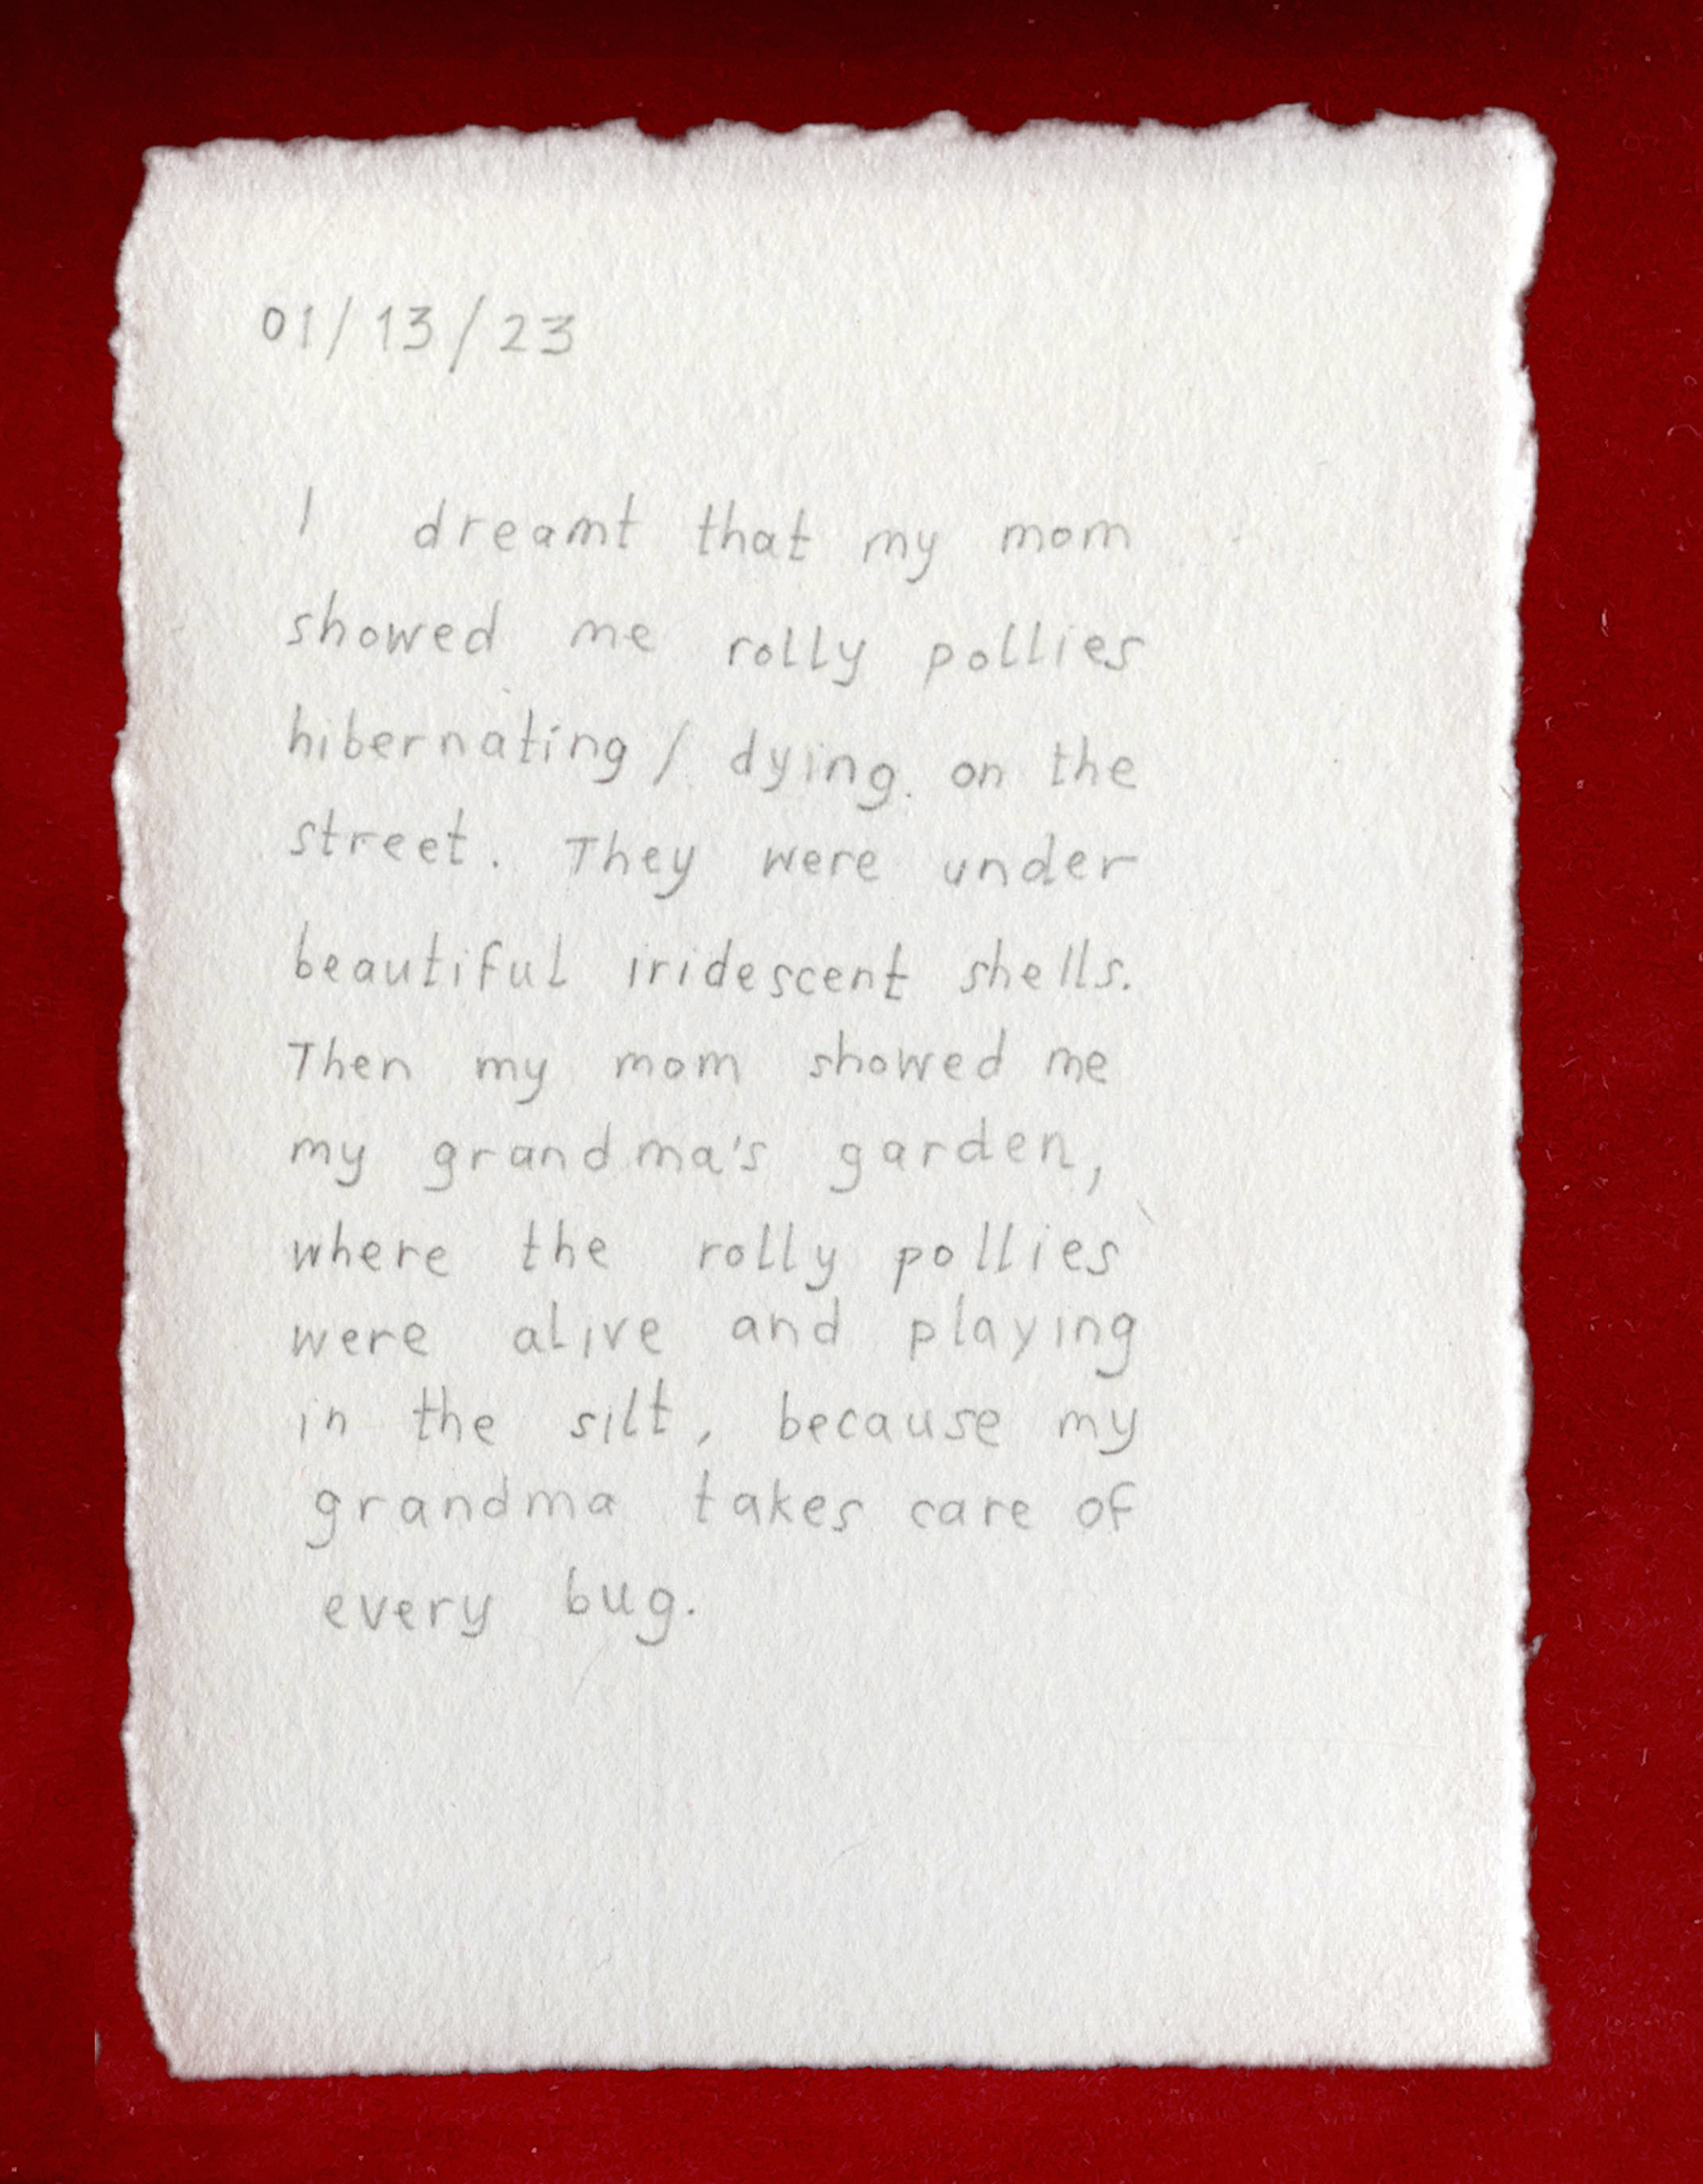 01/13/23
I dreamt that my mom
showed me rolly pollies
hibernating / dying on the
street. They were under
beautiful iridescent shells.
Then my mom showed me
my grandma's garden,
where the rolly pollies
were alive and playing
in the silt, because my
grandma takes care of
every bug.